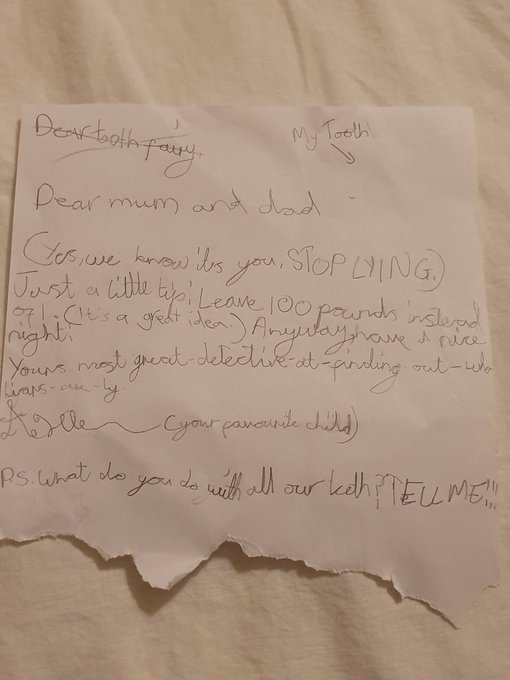 Dear tooth fairy,
My Tooth!
Dear mum and dad
(Yes, we know its you, STOP LYING.)
Just a little tip; Leave 100 pounds instead
of 1. (It's a great idea.) Anyway, have a nice
night!
Yours most great-detective-at-finding-out-who
liars-are-by.
(your favourite child)
P.S. What do you do with all our teeth? TELL ME!!!